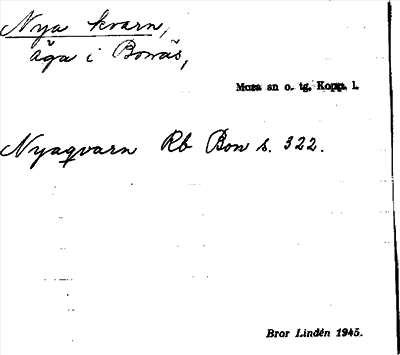 Nya kvarn,
äga i Bonäs,
Mora sn o. tg, Kopp. l.
Nyaqvarn Rb Bon s. 322.
Bror Lindén 1945.